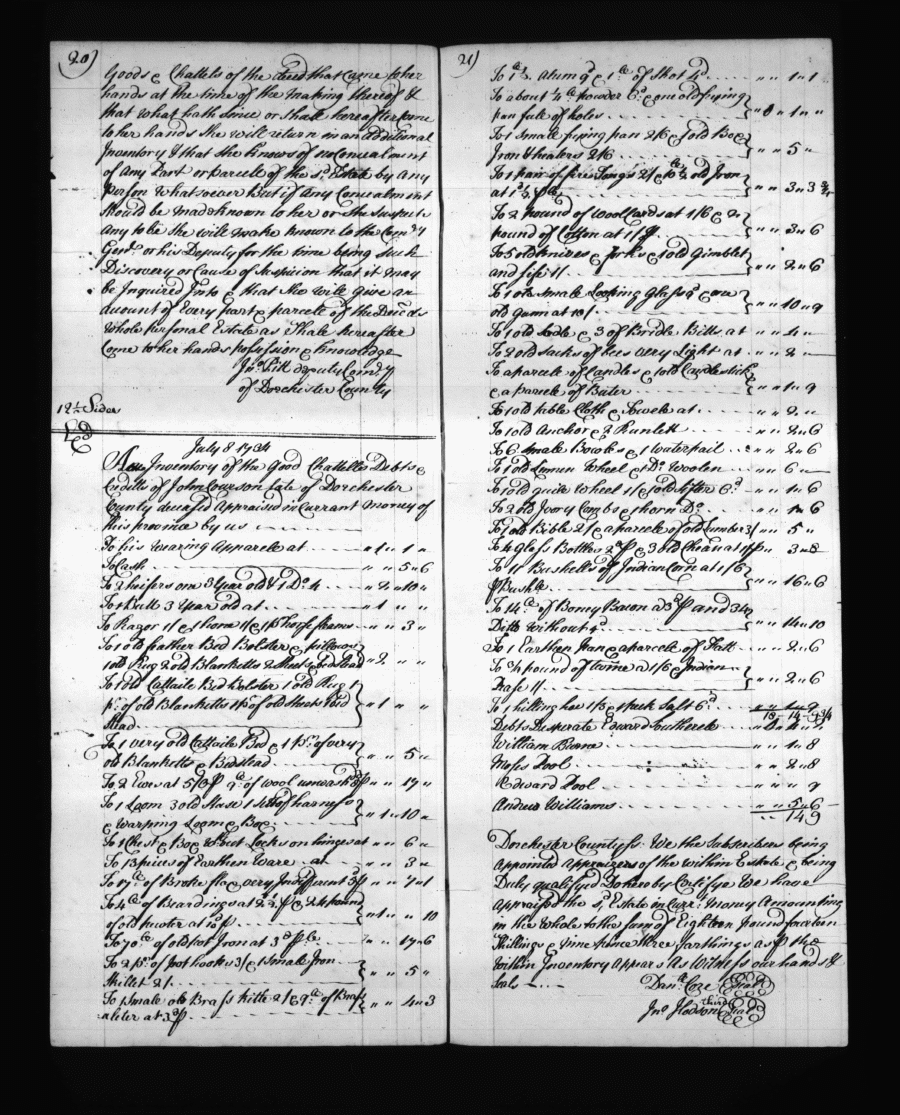 20)
Goods & Chattels of the deced that Came to her
hands at the time of the Making thereof &
that what hath Since or Shall hereafter come
to her hands She will return in an additional
Inventory & that She knows of no Concealment
of any Part or parcele of the sd. Estate by any
person whatsoever But if any Concealment
Should be made known to her or She Suspects
any to be She will make known to the Comry.
Genl. or his Deputy for the time being Such
Discovery or Cause of Suspicion that it may
be Inquired Into & that She will Give an
account of Every part & parcele of the Deceds
whole personal Estate as Shall hereafter
Come to her hands possession & knowledge
Jno. Pitt deputy Comry
of Dorchester County
12½ Sides
July 8 1734
An Inventory of the Good Chattells Debts &
Creditts of John Courson late of Dorchester
County deceased Appraised in Currant money of
this province by us
To his wearing Apparele at " 1 " 1 "
To Cash " " 5 " 6
To 2 heifers one 3 Year old & 1 Do. 4 " 2 " 10 "
To 1 Bull 3 Year old at " 1 " "
To Razor 1/ & 1 hone 1/ & 1 pr horse frame " " 3 "
To 1 old feather Bed Bolster & pillows
1 old Rug 2 old Blanketts 2 Sheets & bedstead " 2 " "
To 1 old Cattaile Bed bolster 1 old Rug 1
pr. of old Blanketts 1 pr of old Sheets & bed " 1 " "
Stead
To 1 very old Cattaile Bed & 1 pr. of very
old Blanketts & Bedstead " " 5 "
To 2 Ewes at 5/6 P of wool unwashed " " 17 "
To 1 Loom 3 old Slaes 1 Sett of harness
& warping Loom & Box " 1 " 10 "
To 1 Chest & Box without Locks on hinges at " " 6 "
To 13 pices of Earthen Ware at " " 3 "
To 17 lb of Broke flax very Indifferent 5P " " 7 " 1
To 4 lb of Beardings at 2½ P & 24 pound
of old pewter at 10d P " 1 " " 10
To 70 lb of old pot Iron at 3d P lb " " 17 " 6
To 2 pr. of pot hooks 3/ & 1 Small Iron
Skillet 2/ " " 5 "
To 1 Smale old Brass kittle 2/ & 9 lb of Brass
at 3d P " " 4 " 3
21)
To 1 lb ½ Alum & 1 lb of Shot 4d " " 1 " 1
To about ¼ lb powder 6d & one old frying
pan full of holes " " 1 " "
To 1 Small frying pan 2/6 & 1 old Box
Iron & heaters 2/6 " " 5 "
To 1 pair of fire Tongs 2/ & 10½ old Iron
at 1½ P lb " " 3 " 3¾
To 2 pound of Wool Cards at 1/6 & 2
pound of Cotton at 1/ P " " 3 " 6
To 5 old knives & forks & 1 old Gimblet
and fife 1/ " " 2 " 6
To 1 old Smale Looking Glass & one
old Gunn at 10/ " " 10 " 9
To 1 old Sadle & 3 of Bridle Bitts at " " 4 "
To 2 old Sacks of bees very Light at " " 2 "
To a parcele of Candles & 1 old Candlestick
& a parcele of Buter " " 1 " 9
To 1 old table Cloth & Towele at " " 2 "
To 1 old Anchor & 2 Runlett " " 2 " 6
To 6 Smale Bowles & 1 waterpail " " 2 " 6
To 1 old Linnen Wheel & 1 Do. Woolen " " 6 "
To 1 old quile wheel 1/ & 1 old Sifter 6d " " 1 " 6
To 2 old Ivory Combs & 1 horn Do. " " 1 " 6
To 1 old Bible 2/ & a parcele of old Lumber 3/ " " 5 "
To 4 Glass Bottles 2d P & 3 old Chears at 1/ P " " 3 " 8
To 11 Bushells of Indian Corn at 1/6
P Bushle " " 16 " 6
To 14 lb of Boney Bacon a 3d P and 34
Ditto without 4d " " 14 " 10
To 1 Earthen pan & a parcele of Fatt " " 2 " 6
To ¾ pound of twine a 1/6 & Indian
" " 2 " 6
To 1 hilling hoe 1/3 & 1 peck Salt 6d " " 1 " 9
18 " 14 " 9¾
Debts Desperate Edward Southerele " 4 " "
William Borne " 1 " 8
Moses Dool " 2 " 8
Edward Dool " " 9
Andrew Williams " " 5 " 6
" 14 9
Dorchester County ss. We the Subscribers being
appointed Appraizers of the within Estate & being
Duly qualifyed Do hereby Certifye We have
appraised the sd Estate in Curr. Money Amounting
in the Whole to the Sum of Eighteen pound fourteen
Shillings & nine pence three farthings as P the
within Inventory Appears As Witness our hands &
Seals
Danl. Coze Seal
Jno. Hodson third Seal